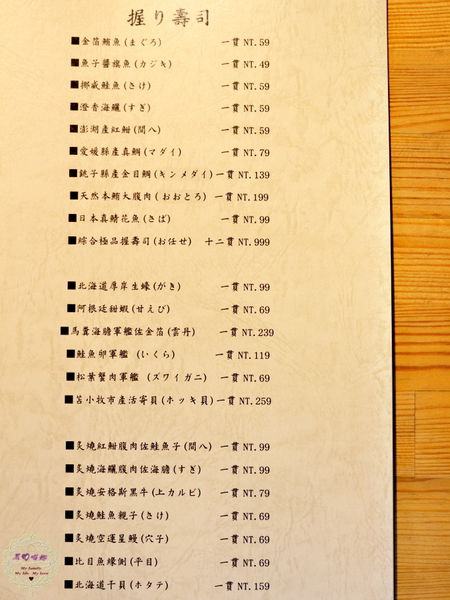 握り壽司
■金箔鮪魚(まぐろ) 一貫 NT.59
■魚子醬旗魚(カジキ) 一貫 NT.49
■挪威鮭魚(さけ) 一貫 NT.59
■澄香海鱺(すぎ) 一貫 NT.59
■澎湖產紅魽(間八) 一貫 NT.59
■愛媛縣產真鯛(マダイ) 一貫 NT.79
■銚子縣產金目鯛(キンメダイ) 一貫 NT.139
■天然本鮪大腹肉(おおとろ) 一貫 NT.199
■日本真鯖花魚(さば) 一貫 NT.99
■綜合極品握壽司(お任せ) 十二貫 NT.999
■北海道厚岸生蠔(がき) 一貫 NT.99
■阿根廷甜蝦(甘えび) 一貫 NT.69
■馬糞海膽軍艦佐金箔(雲丹) 一貫 NT.239
■鮭魚卵軍艦 (いくら) 一貫 NT.119
■松葉蟹肉軍艦 (ズワイガニ) 一貫 NT.69
■苫小牧市產活寄貝(ホッキ貝) 一貫 NT.259
■炙燒紅魽腹肉佐鮭魚子(間八) 一貫 NT.99
■炙燒海鱺腹肉佐海膽(すぎ) 一貫 NT.99
■炙燒安格斯黑牛(上カルビ) 一貫 NT.79
■炙燒鮭魚親子(さけ) 一貫 NT.69
■炙燒空運星鰻(穴子) 一貫 NT.69
■比目魚緣側(平目) 一貫 NT.69
■北海道干貝(ホタテ) 一貫 NT.159
My family.
My life. My love